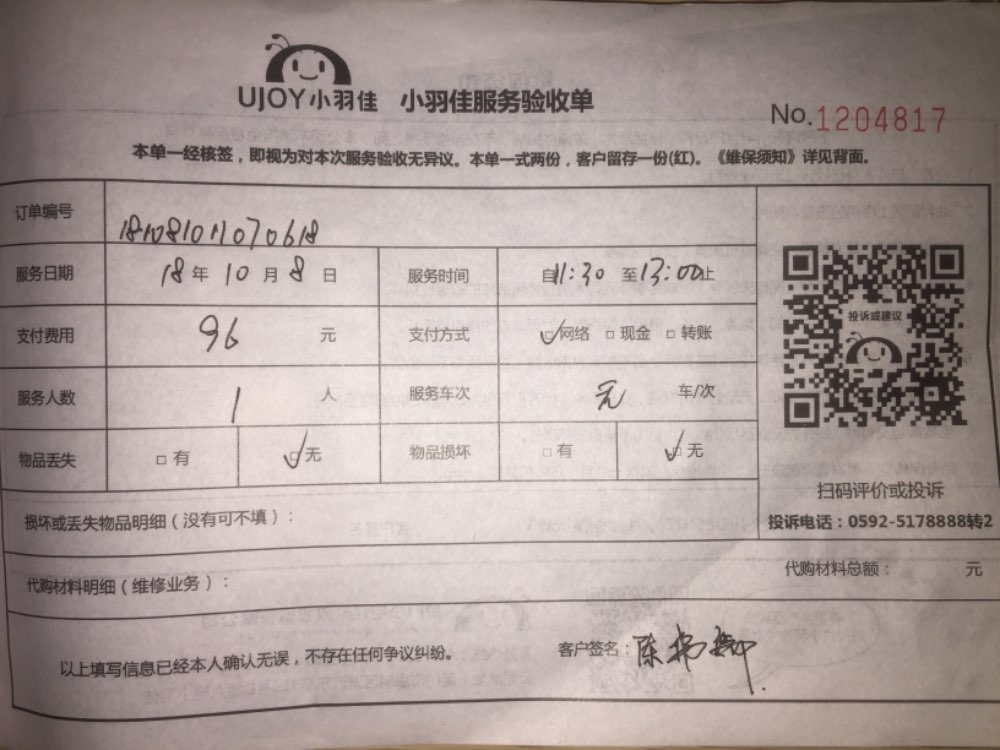 UJOY小羽佳 小羽佳服务验收单
No.1204817
本单一经核签，即视为对本次服务验收无异议。本单一式两份，客户留存一份(红)。《维保须知》详见背面。
订单编号 181081011070618
服务日期 18年10月8日 服务时间 自11:30至13:00止
支付费用 96 元 支付方式 ☑网络 □现金 □转账
投诉或建议
服务人数 1 人 服务车次 无 车/次
物品丢失 □有 ☑无 物品损坏 □有 ☑无
扫码评价或投诉
损坏或丢失物品明细（没有可不填）：
投诉电话：0592-5178888转2
代购材料明细（维修业务）： 代购材料总额： 元
以上填写信息已经本人确认无误，不存在任何争议纠纷。 客户签名：陈